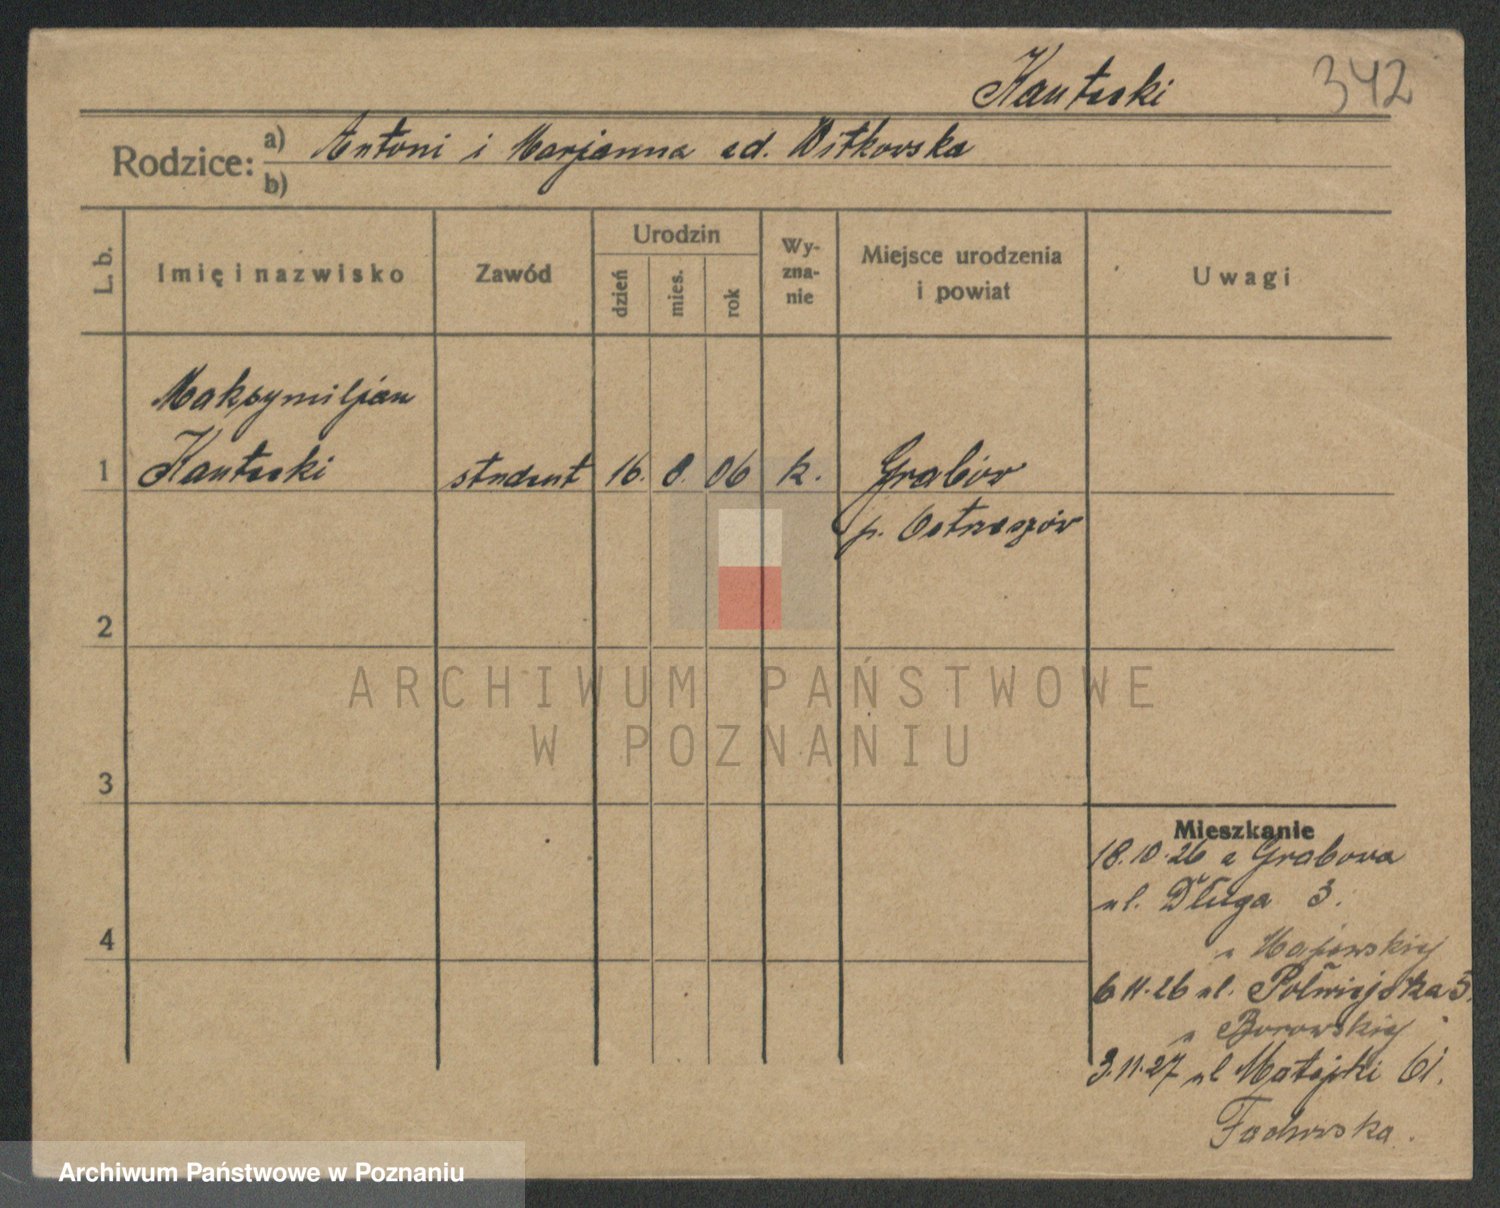 Kantecki 342
Rodzice: a) Antoni i Marjanna zd. Witkowska
b)
L. b. Imię i nazwisko Zawód Urodzin dzień mies. rok Wyznanie Miejsce urodzenia i powiat Uwagi
Maksymiljan
1 Kantecki student 16. 8. 06 k. Grabów
p. Ostrzeszów
2
ARCHIWUM PAŃSTWOWE
W POZNANIU
3
Mieszkanie
18.10.26 z Grabowa
ul. Długa 3.
u Majewskiej
4
6.11.26 ul. Półwiejska 5.
u Borowskiej
3.11.27 ul Matejki 61.
Archiwum Państwowe w Poznaniu